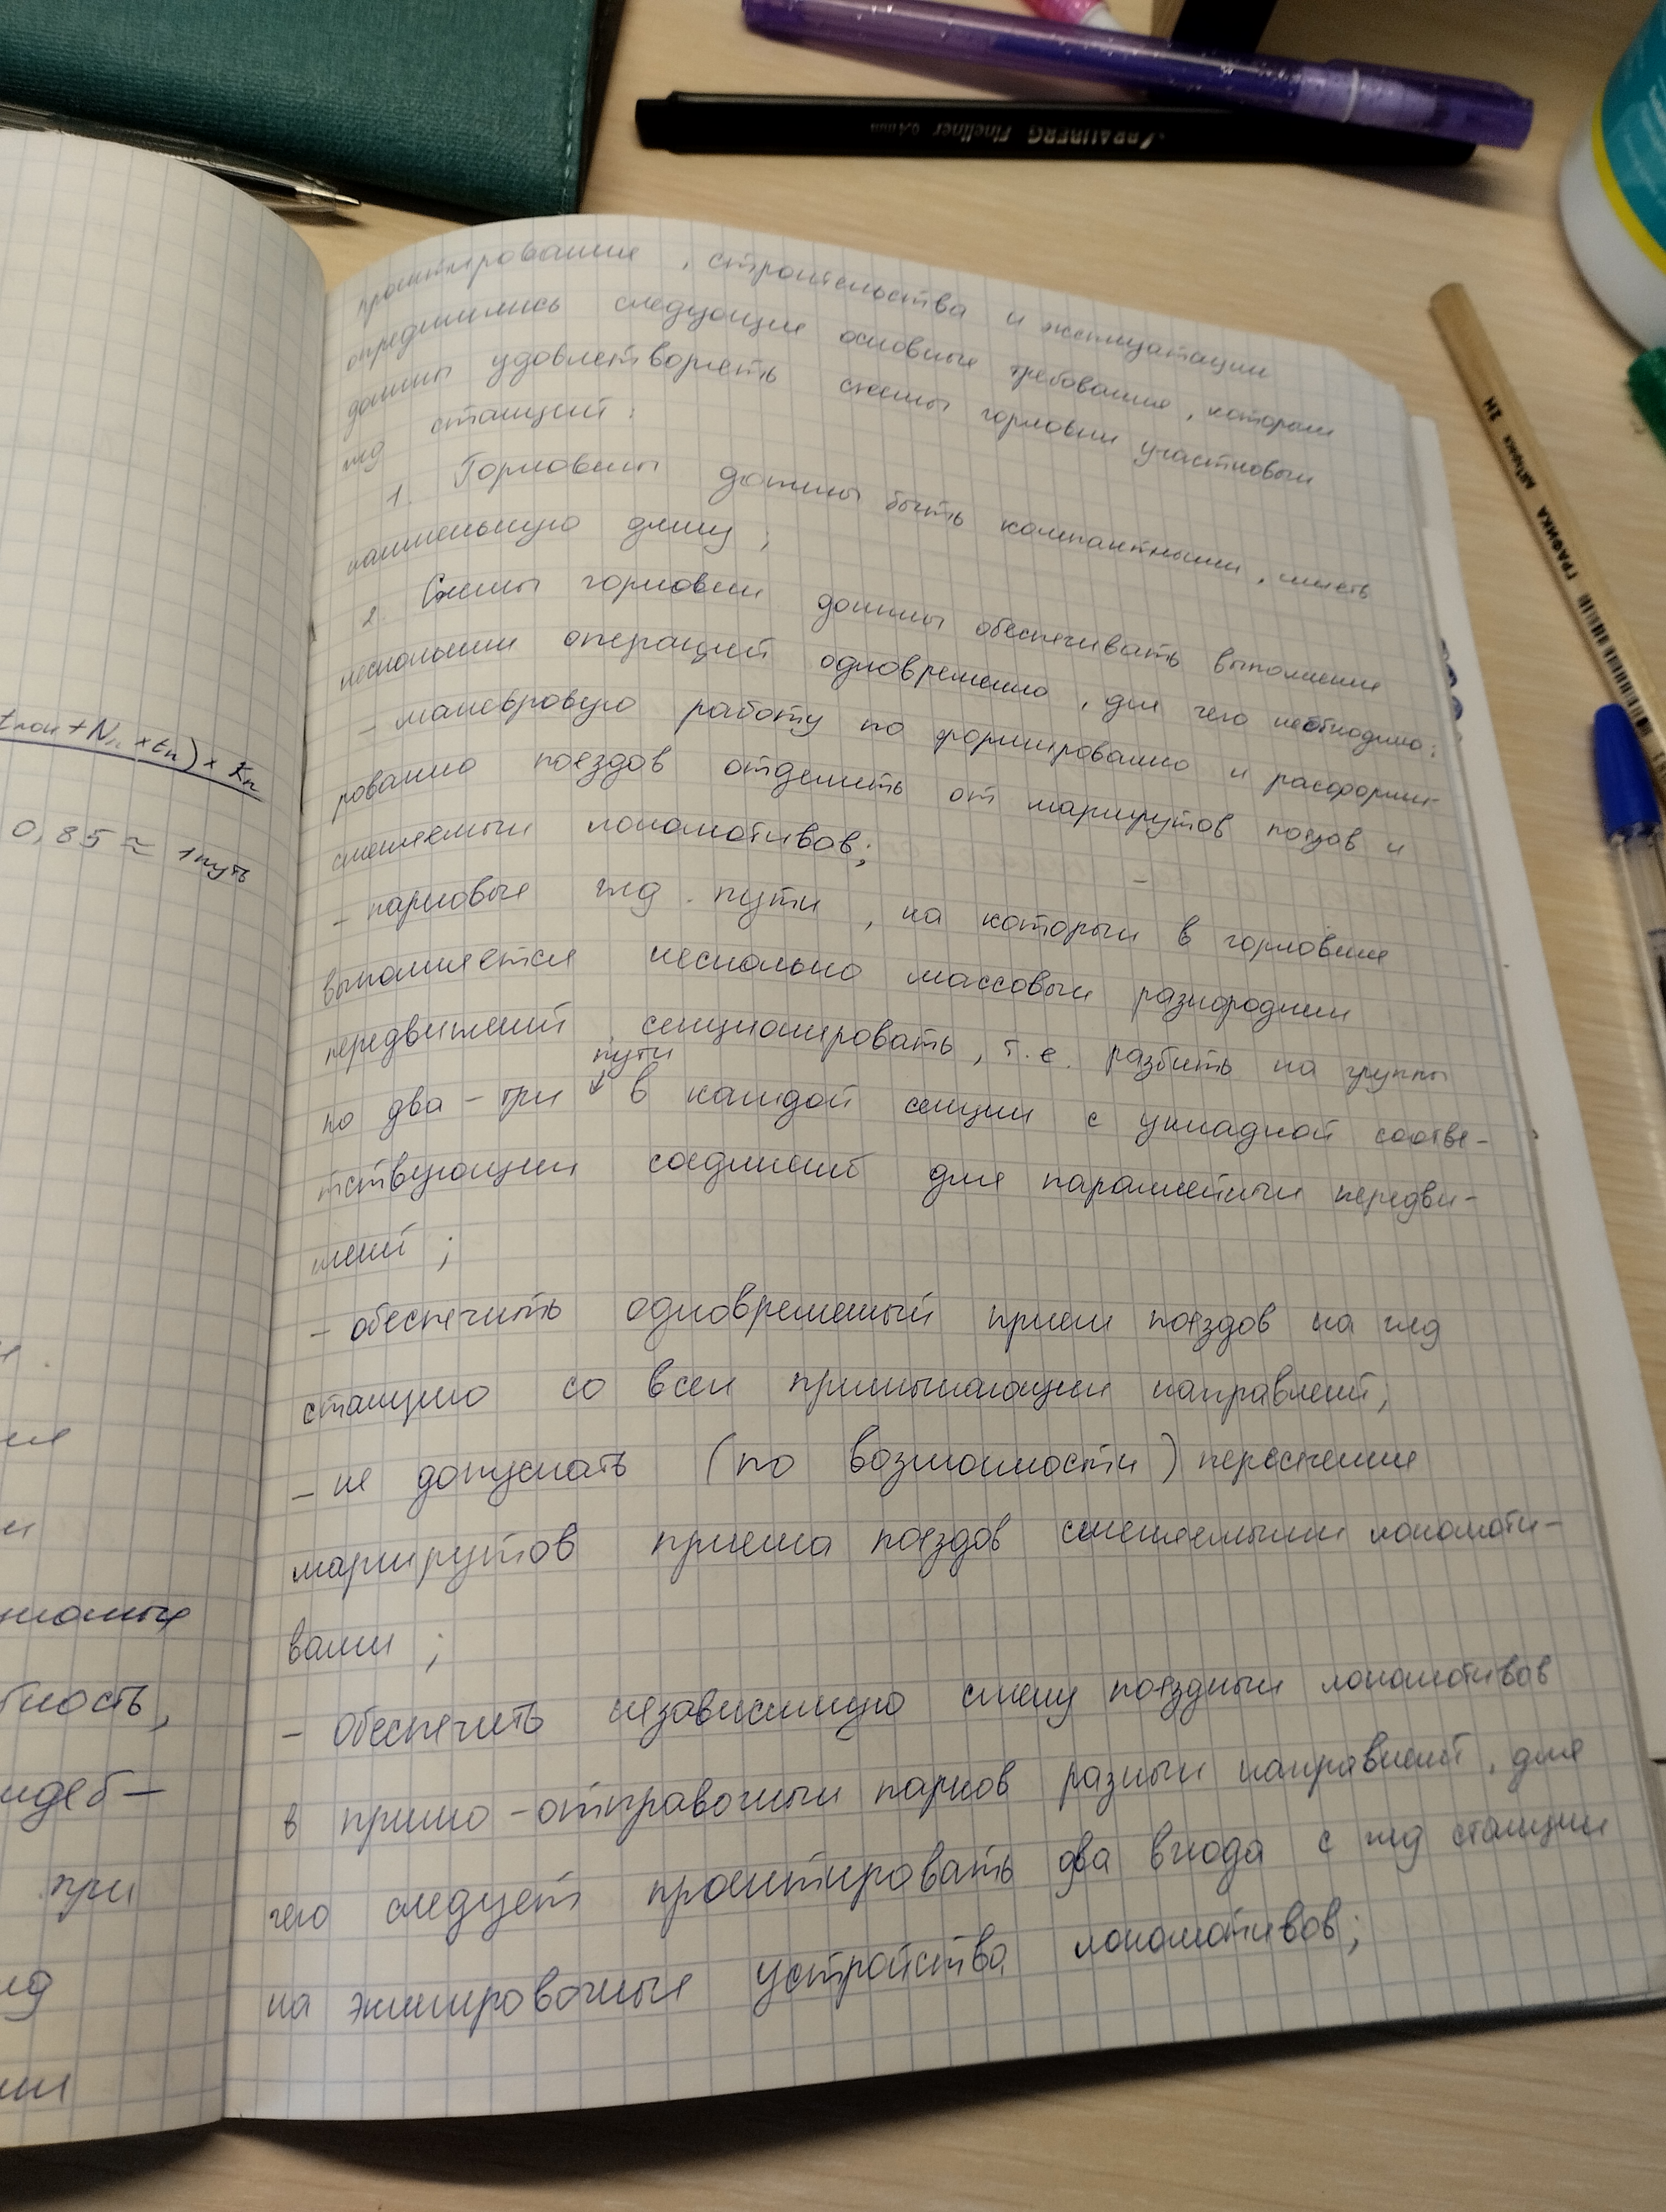 BRAUBERG Fineliner 0.4 mm
ГРАФИКА Айбрис 2Н
проектирования, строительства и эксплуатации
определились следующие основные требования, которым
должны удовлетворять схемы горловин участковых
жд станций:
1. Горловины должны быть компактными, иметь
наименьшую длину;
2. Схемы горловин должны обеспечивать выполнение
нескольких операций одновременно, для чего необходимо:
- маневровую работу по формированию и расформи-
рованию поездов отделить от маршрутов поездов и
сменяемых локомотивов;
- парковые жд. пути, на которых в горловине
выполняется несколько массовых разнородных
передвижений секционировать, т.е. разбить на группы
пути
по два-три ↓ в каждой секции с укладкой соотве-
тствующих соединений для параллельных передви-
жений;
- обеспечить одновременный прием поездов на жд
станцию со всех примыкающих направлений;
- не допускать (по возможности) пересечение
маршрутов приема поездов сменяемыми локомоти-
вами;
- обеспечить независимую смену поездных локомотивов
в приемо-отправочных парков разных направлений, для
чего следует проектировать два входа с жд станции
на экипировочные устройства локомотивов;
+ Nп × tп) × Kп
0,85 ≈ 1 путь
при